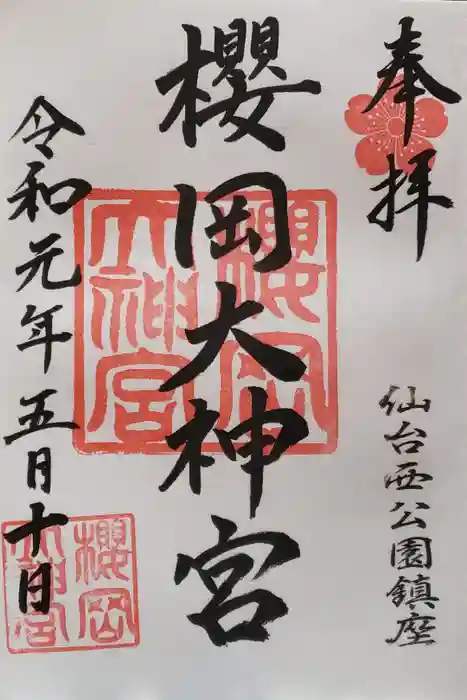 奉拝
仙台西公園鎮座
櫻岡大神宮
櫻岡
大神宮
令和元年五月十日
櫻岡
大神宮